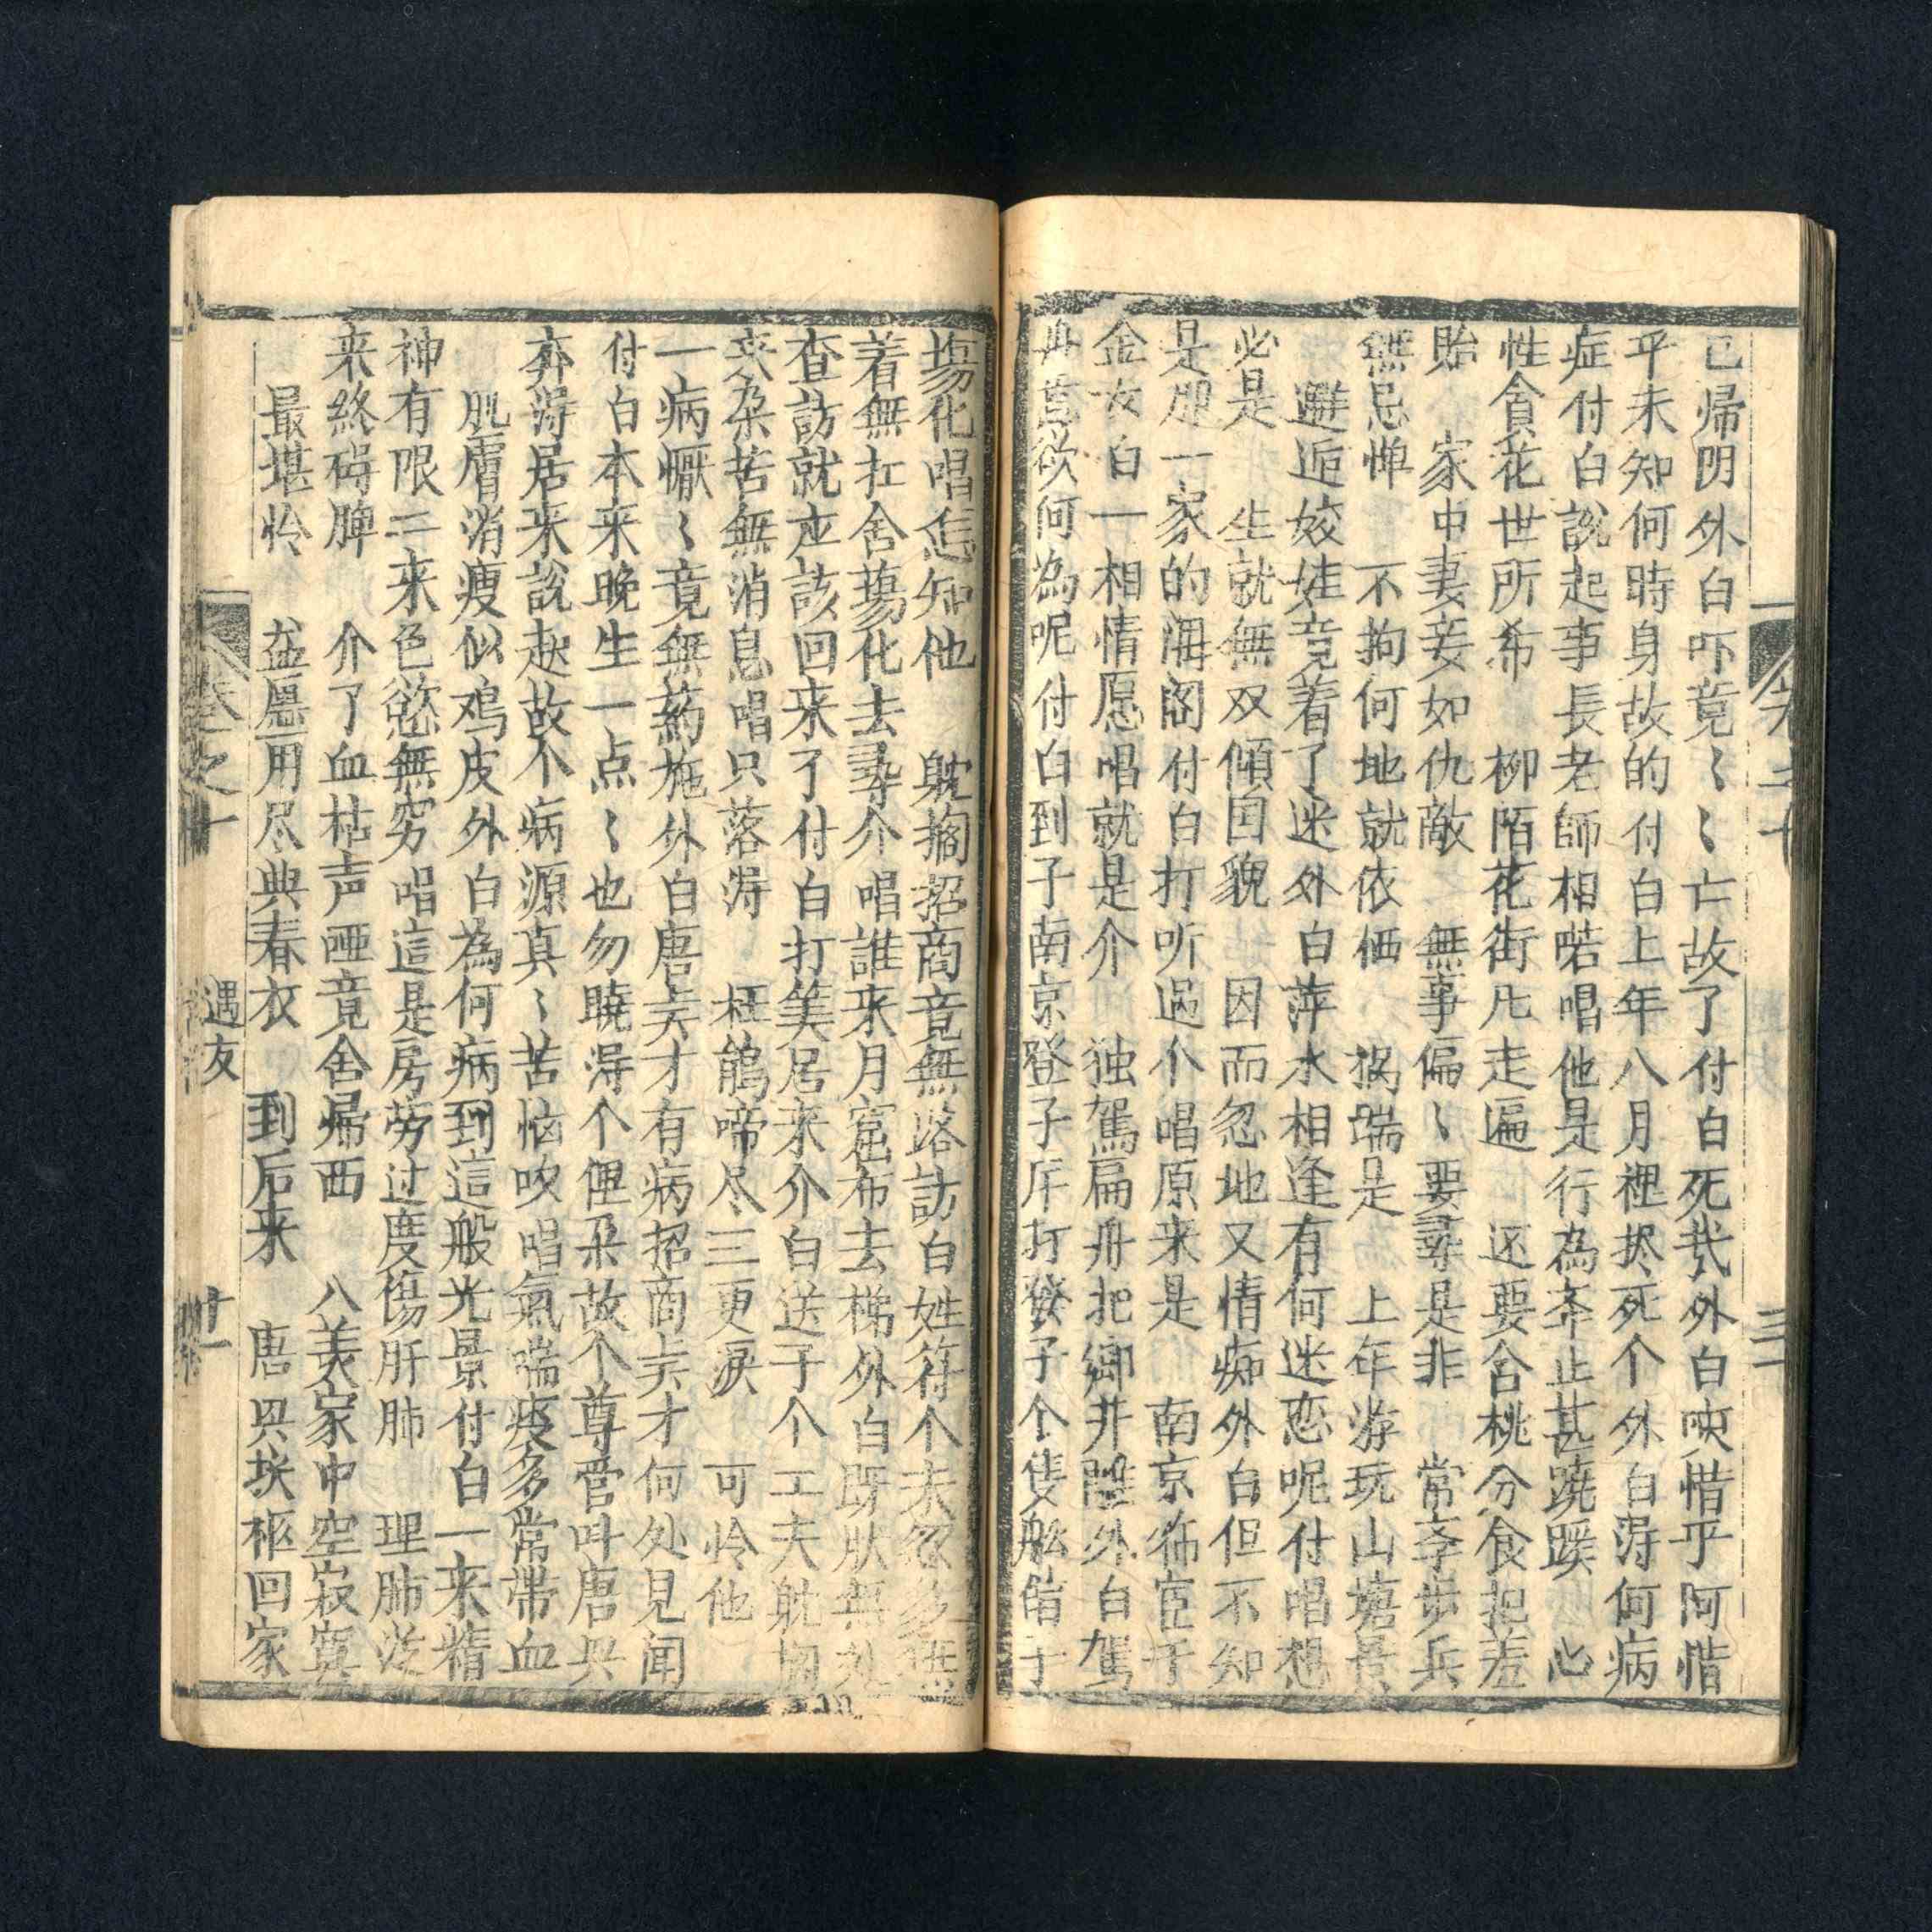 已帰阴外白吓竟〻〻亡故了付白死㢤外白哎惜乎阿惜
乎未知何時身故的付白上年八月裡拶死个外白淂何病
症付白說起事長老師相啱唱他是行為夲止甚蹺蹊 心
性貪花世所希 柳陌花街凣走遍 还要舍桃分食把羞
貽 家中妻妾如仇敵 無事偏〻要尋是非 常夲步兵
無忌惮 不拘何地就依栖 揭端是 上年游玩山塘景
避逅姣娃竟着了迷外白萍水相逢有何迷恋呢付唱想
必是 生就無双傾囯貌 因而忽地又情痴外白但不知
是那一家的闺阁付白打听過个唱原来是 南京 宦于
金女白一相情愿唱就是介 独駕扁舟把鄉井離外白駕
舟意欲何為呢付白到子南京登子岸打發子个隻船 于
塲化唱怎知他 躭擱招商竟無路訪白姓符个夫
着無扛舍蕩化去尋介唱誰来月窟布去梯外白既
查訪就应該回来了付白打美居来介白送子个工夫躭擱
夾朶苦無消息唱只落淂 枉鵑啼尽三更淚 可怜他
一病懨〻竟無葯施外白唐秀才有病招商秀才何处見闻
付白本来晚生一点〻也勿曉淂个俚朶故个尊管叫唐兴
奔淂居来說赵故个病源真〻苦恼㕮唱氣喘痰多常帶血
肌膚消瘦似鸡皮外白為何病到這般光景付白一来精
神有限二来色慾無穷唱這是房劳过度傷肝肺 理肺
来終碍脾 介了血枯声哑竟舍帰西 八美家中空寂寞
最堪怜 盆愿用尽典春衣 到后来 唐兴块柩回家
遇友